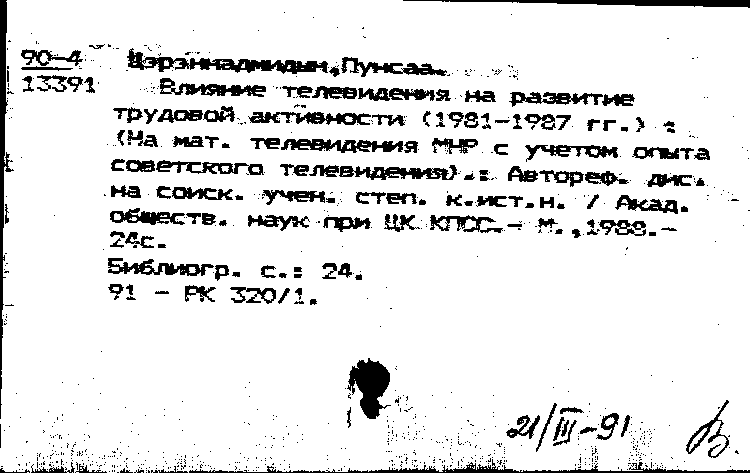 90-4 Цэрэннадмидын,Пунсаа.
13391 Влияние телевидения на развитие
трудовой активности (1981-1987 гг.) :
(На мат. телевидения МНР с учетом опыта
советского телевидения).: Автореф. дис.
на соиск. учен. степ. к.ист.н. / Акад.
обществ. наук при ЦК КПСС.- М.,1988.-
24с.
Библиогр. с.: 24.
91 - РК 320/1.
21/III-91